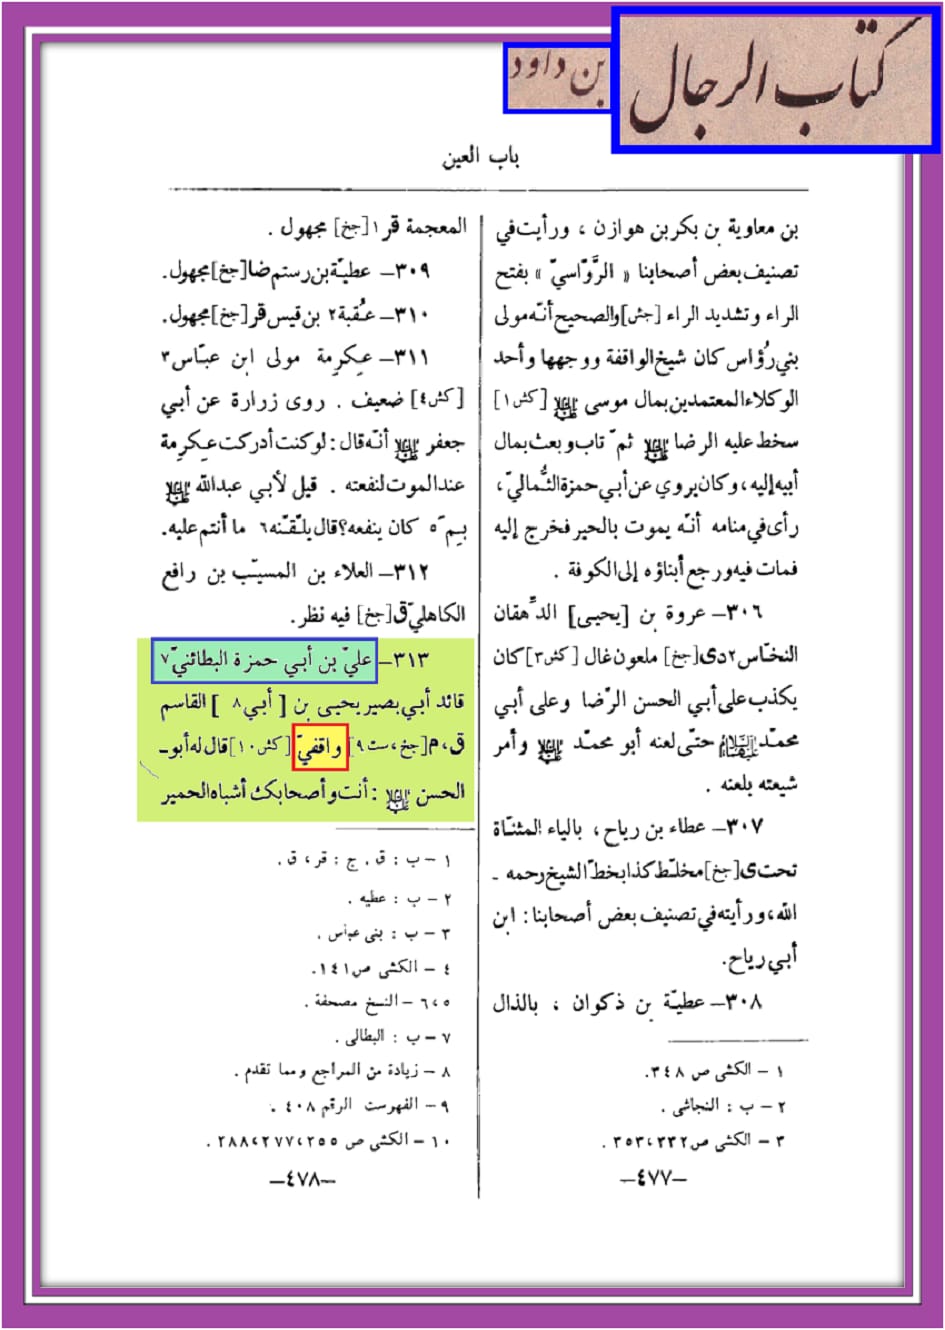 كتاب الرجال
بن داود
باب العين
بن معاوية بن بكر بن هوازن ، ورأيت في
تصنيف بعض أصحابنا « الرَّوّاسيّ » بفتح
الراء وتشديد الراء [جش] والصحيح أنّه مولى
بني رُؤاس كان شيخ الواقفة ووجهها وأحد
الوكلاء المعتمدين بمال موسى عليه السلام [كش١]
سخط عليه الرضا عليه السلام ثمّ تاب وبعث بمال
أبيه إليه، وكان يروي عن أبي حمزة الثُّماليّ ،
رأى في منامه أنّه يموت بالحير فخرج إليه
فمات فيه ورجع أبناؤه إلى الكوفة .
٣٠٦ـ عروة بن [يحيى] الدِّهقان
النخّاس٢ دى[جخ] ملعون غال [كش٣] كان
يكذب على أبي الحسن الرّضا وعلى أبي
محمّد عليهما السلام حتّى لعنه أبو محمّد عليه السلام وأمر
شيعته بلعنه .
٣٠٧ـ عطاء بن رياح ، بالياء المثنّاة
تحت ى[جخ] مخلّط كذا بخطّ الشيخ رحمه ـ
الله، ورأيته في تصنيف بعض أصحابنا : ابن
أبي رياح.
٣٠٨ـ عطيّة بن ذكوان ، بالذال
١ ـ الكشى ص ٣٤٨.
٢ ـ ب : النجاشى .
٣ ـ الكشى ص٣٥٣،٣٣٢ .
ـ٤٧٧ـ
المعجمة قر١[جخ] مجهول .
٣٠٩ـ عطيّة بن رستم ضا[جخ] مجهول.
٣١٠ـ عُقبة٢ بن قيس قر[جخ] مجهول.
٣١١ـ عِكرِمة مولى ابن عبّاس٣
[كش٤] ضعيف . روى زرارة عن أبي
جعفر عليه السلام أنّه قال : لو كنت أدركت عِكرِمة
عند الموت لنفعته . قيل لأبي عبدالله عليه السلام
بِمَ٥ كان ينفعه؟ قال يلقّنه٦ ما أنتم عليه.
٣١٢ـ العلاء بن المسيّب بن رافع
الكاهليّ ق[جخ] فيه نظر.
٣١٣ـ عليّ بن أبي حمزة البطائنيّ٧
قائد أبي بصير يحيى بن [ أبي٨ ] القاسم
ق،م[جخ،ست٩] واقفيّ [كش١٠] قال له أبو ـ
الحسن عليه السلام : أنت وأصحابك أشباه الحمير
١ ـ ب : ق . ج : قر ، ق .
٢ ـ ب : عطيه .
٣ ـ ب : بنى عباس .
٤ ـ الكشى ص١٤١.
٥،٦ ـ النسخ مصحفة .
٧ ـ ب : البطالى .
٨ ـ زيادة من المراجع ومما تقدم .
٩ ـ الفهرست الرقم ٤٠٨ .
١٠ ـ الكشى ص ٢٨٨،٢٧٧،٢٥٥ .
ـ٤٧٨ـ